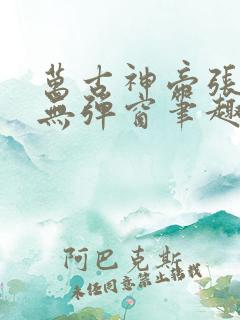 萬古神帝張
無彈窗筆趣
阿巴克斯
未經同意禁止轉載